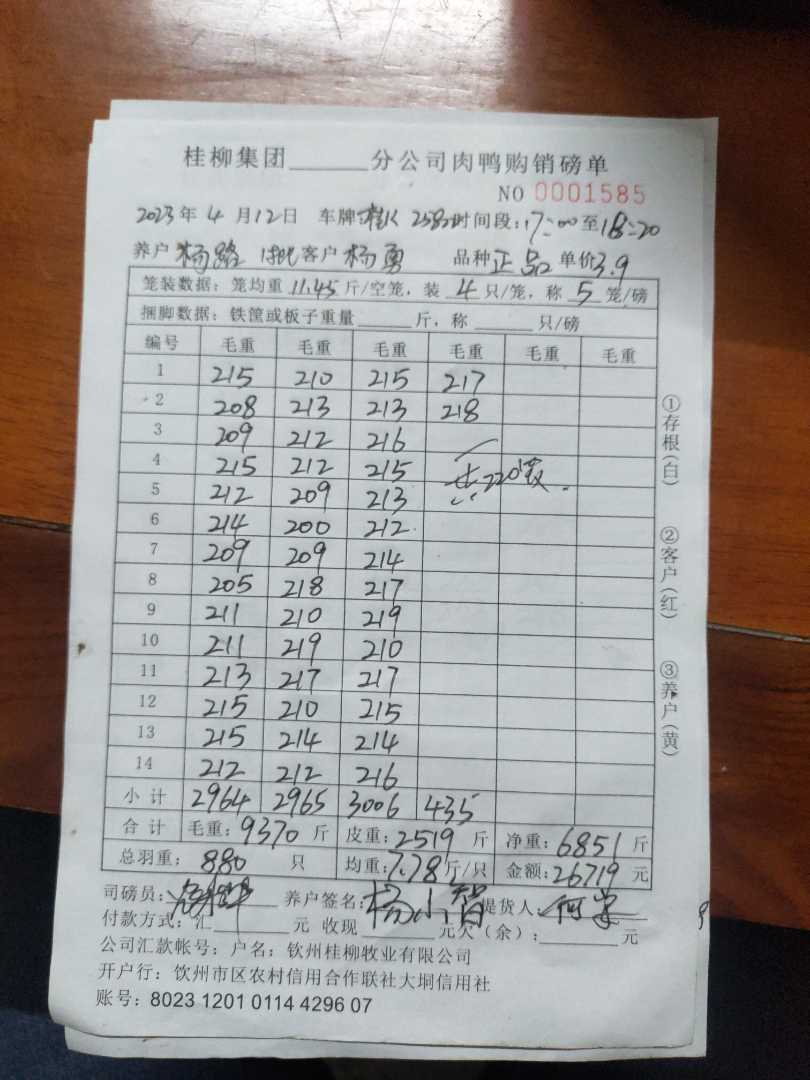 桂柳集团______分公司肉鸭购销磅单
NO 0001585
2023年 4 月12日 车牌 时间段:17:00至18:20
养户 杨路 1批 客户 杨勇 品种 正品 单价3.9
笼装数据:笼均重 11.45 斤/空笼,装 4 只/笼,称 5 笼/磅
捆脚数据:铁筐或板子重量______斤,称______只/磅
编号 毛重 毛重 毛重 毛重 毛重 毛重
1 215 210 215 217
2 208 213 213 218
3 209 212 216
4 215 212 215 共220笼
5 212 209 213
6 214 200 212
7 209 209 214
8 205 218 217
9 211 210 219
10 211 219 210
11 213 217 217
12 215 210 215
13 215 214 214
14 212 212 216
小计 2964 2965 3006 435
合计 毛重:9370 斤 皮重:2519 斤 净重:6851 斤
总羽重:880 只 均重:7.78斤/只 金额:26719 元
司磅员: 养户签名:杨小智 提货人:
付款方式:汇______元 收现______元欠(余):______元
公司汇款帐号:户名:钦州桂柳牧业有限公司
开户行:饮州市区农村信用合作联社大垌信用社
账号:8023 1201 0114 4296 07
①存根(白)
②客户(红)
③养户(黄)